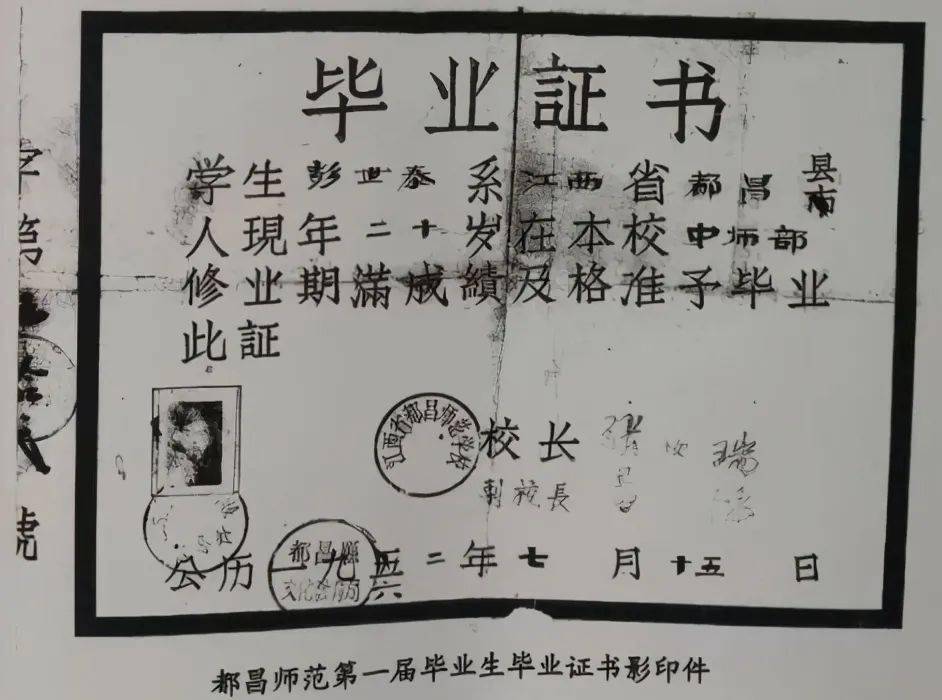 毕业証书
学生彭世泰系江西省都昌县市
人現年二十岁在本校中师部
修业期滿成績及格准予毕业
此証
字第
號
江西省都昌师范学校
校长
副校長
都昌縣
公历一九五六二年七月十五日
都昌师范第一届毕业生毕业证书影印件